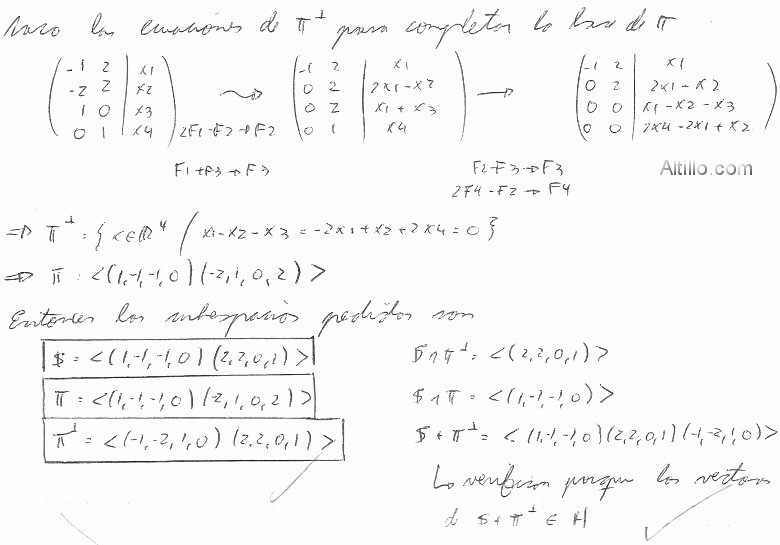 saco las ecuaciones de π⊥ para completar la base de π
( -1 2 | x1 ; -2 2 | x2 ; 1 0 | x3 ; 0 1 | x4 ) ⇝ ( -1 2 | x1 ; 0 2 | 2x1-x2 ; 0 2 | x1+x3 ; 0 1 | x4 ) → ( -1 2 | x1 ; 0 2 | 2x1-x2 ; 0 0 | x1-x2-x3 ; 0 0 | 2x4-2x1+x2 )
2F1-F2→F2
F1+F3→F3
F2-F3→F3
2F4-F2→F4
Altillo.com
⇒ π⊥ = { x∈ℝ⁴ / x1-x2-x3 = -2x1+x2+2x4 = 0 }
⇒ π = <(1,-1,-1,0) (-2,1,0,2)>
Entonces los subespacios pedidos son
$ = <(1,-1,-1,0) (2,2,0,1)>
π = <(1,-1,-1,0) (-2,1,0,2)>
π⊥ = <(-1,-2,1,0) (2,2,0,1)>
$∩π⊥ = <(2,2,0,1)>
$∩π = <(1,-1,-1,0)>
$+π⊥ = <(1,-1,-1,0) (2,2,0,1) (-1,-2,1,0)>
Lo verifican porque los vectores
d $+π⊥ ∈ H